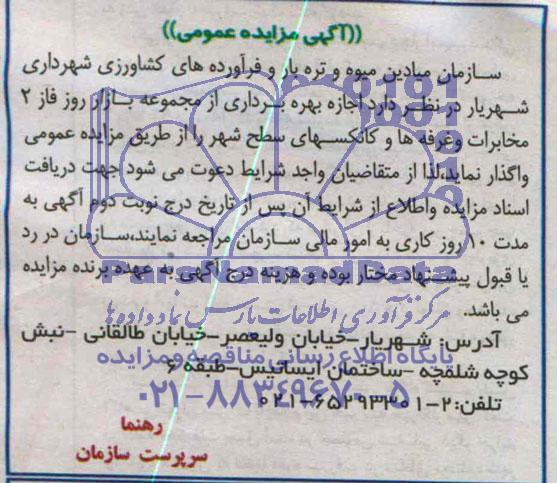 ((آگهی مزایده عمومی))
سازمان میادین میوه و تره بار و فرآورده های کشاورزی شهرداری
شهریار در نظر دارد اجازه بهره برداری از مجموعه بازار روز فاز ۲
مخابرات وغرفه ها و کانکسهای سطح شهر را از طریق مزایده عمومی
واگذار نماید،لذا از متقاضیان واجد شرایط دعوت می شود جهت دریافت
اسناد مزایده واطلاع از شرایط آن پس از تاریخ درج نوبت دوم آگهی به
مدت ۱۰ روز کاری به امور مالی سازمان مراجعه نمایند،سازمان در رد
یا قبول پیشنهاد مختار بوده و هزینه درج آگهی به عهده برنده مزایده
ParsNamadData
مرکز فرآوری اطلاعات پارس نماد داده ها
می باشد.
آدرس: شهریار-خیابان ولیعصر-خیابان طالقانی -نبش
پایگاه اطلاع رسانی مناقصه ومزایده
کوچه شلقچه -ساختمان ایساتیس-طبقه ۶
۰۲۱-۸۸۳۴۹۶۷۰-۵
تلفن:۲-۶۵۲۹۳۳۰۱-۰۲۱
رهنما
سرپرست سازمان